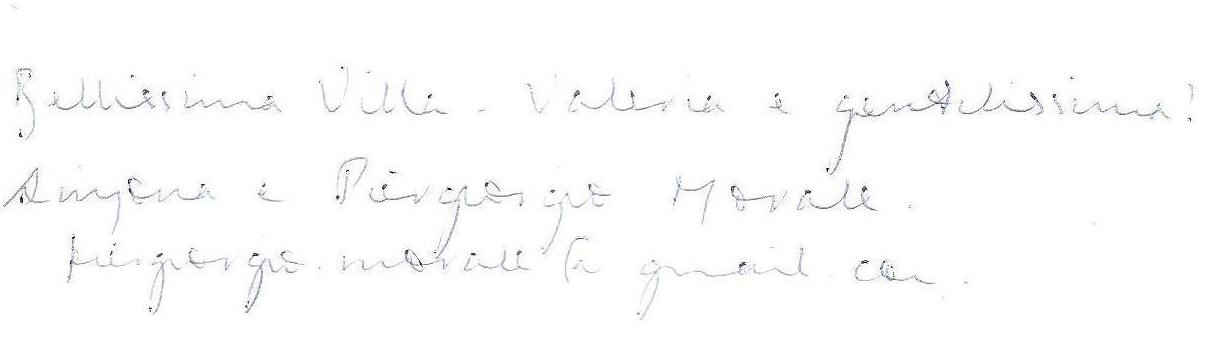 Bellissima Villa - Valeria e gentilissima!
e Piergiorgio Morale.
piergiorgio.morale @ gmail.com.